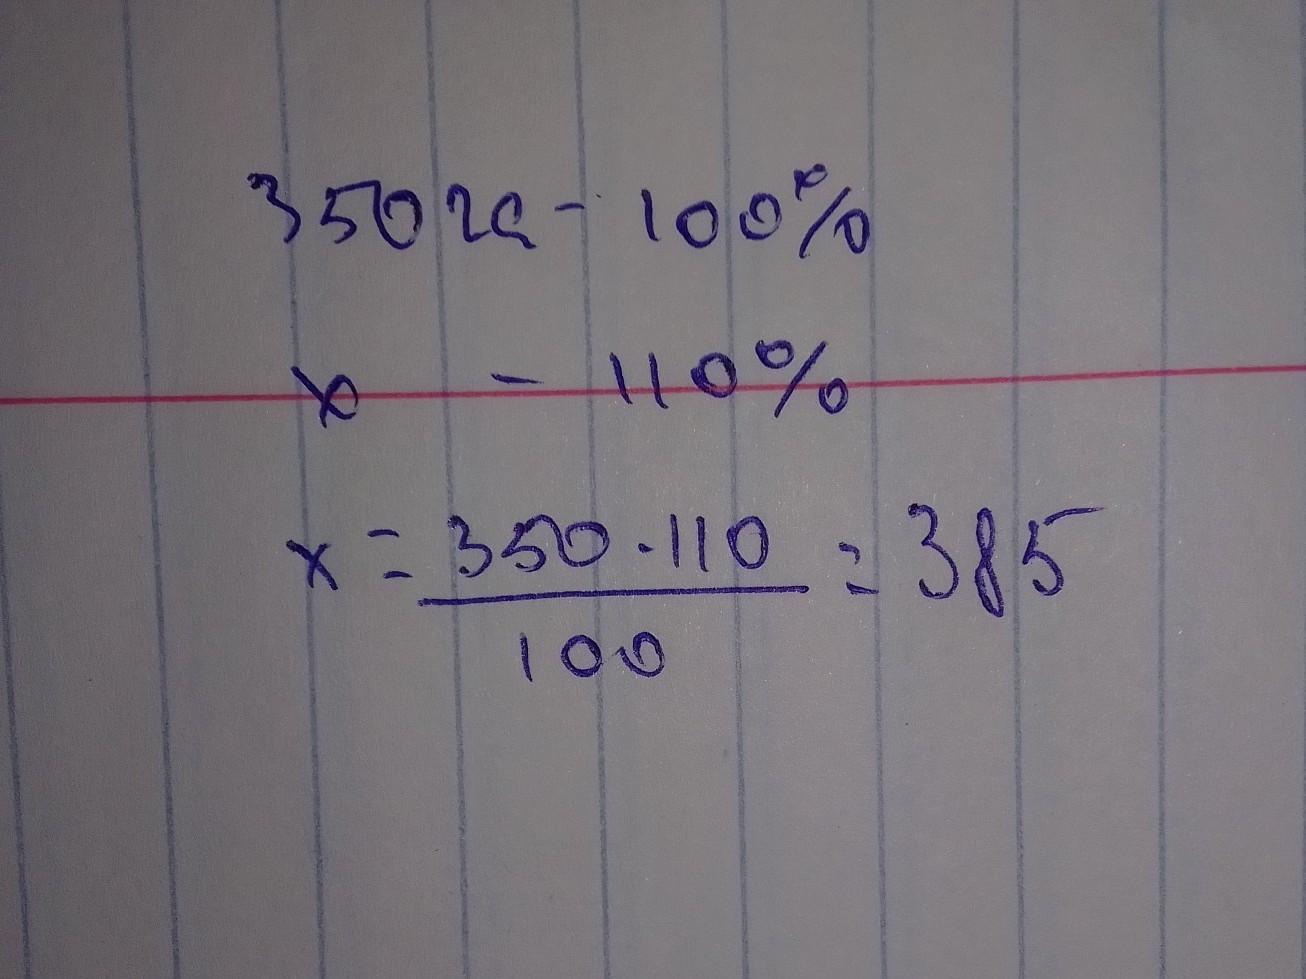 350 га - 100%
x - 110%
x = 350 · 110 / 100 = 385